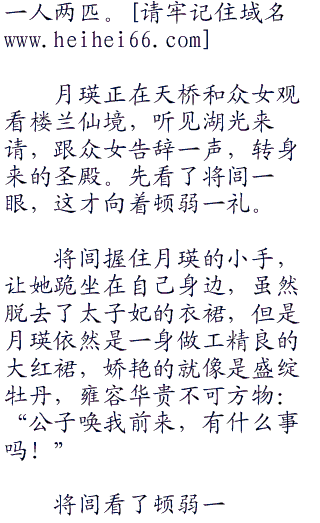 一人两匹。[请牢记住域名
www.heihei66.com]
月瑛正在天桥和众女观
看楼兰仙境，听见湖光来
请，跟众女告辞一声，转身
来的圣殿。先看了将闾一
眼，这才向着顿弱一礼。
将闾握住月瑛的小手，
让她跪坐在自己身边，虽然
脱去了太子妃的衣裙，但是
月瑛依然是一身做工精良的
大红裙，娇艳的就像是盛绽
牡丹，雍容华贵不可方物：
“公子唤我前来，有什么事
吗！”
将闾看了顿弱一